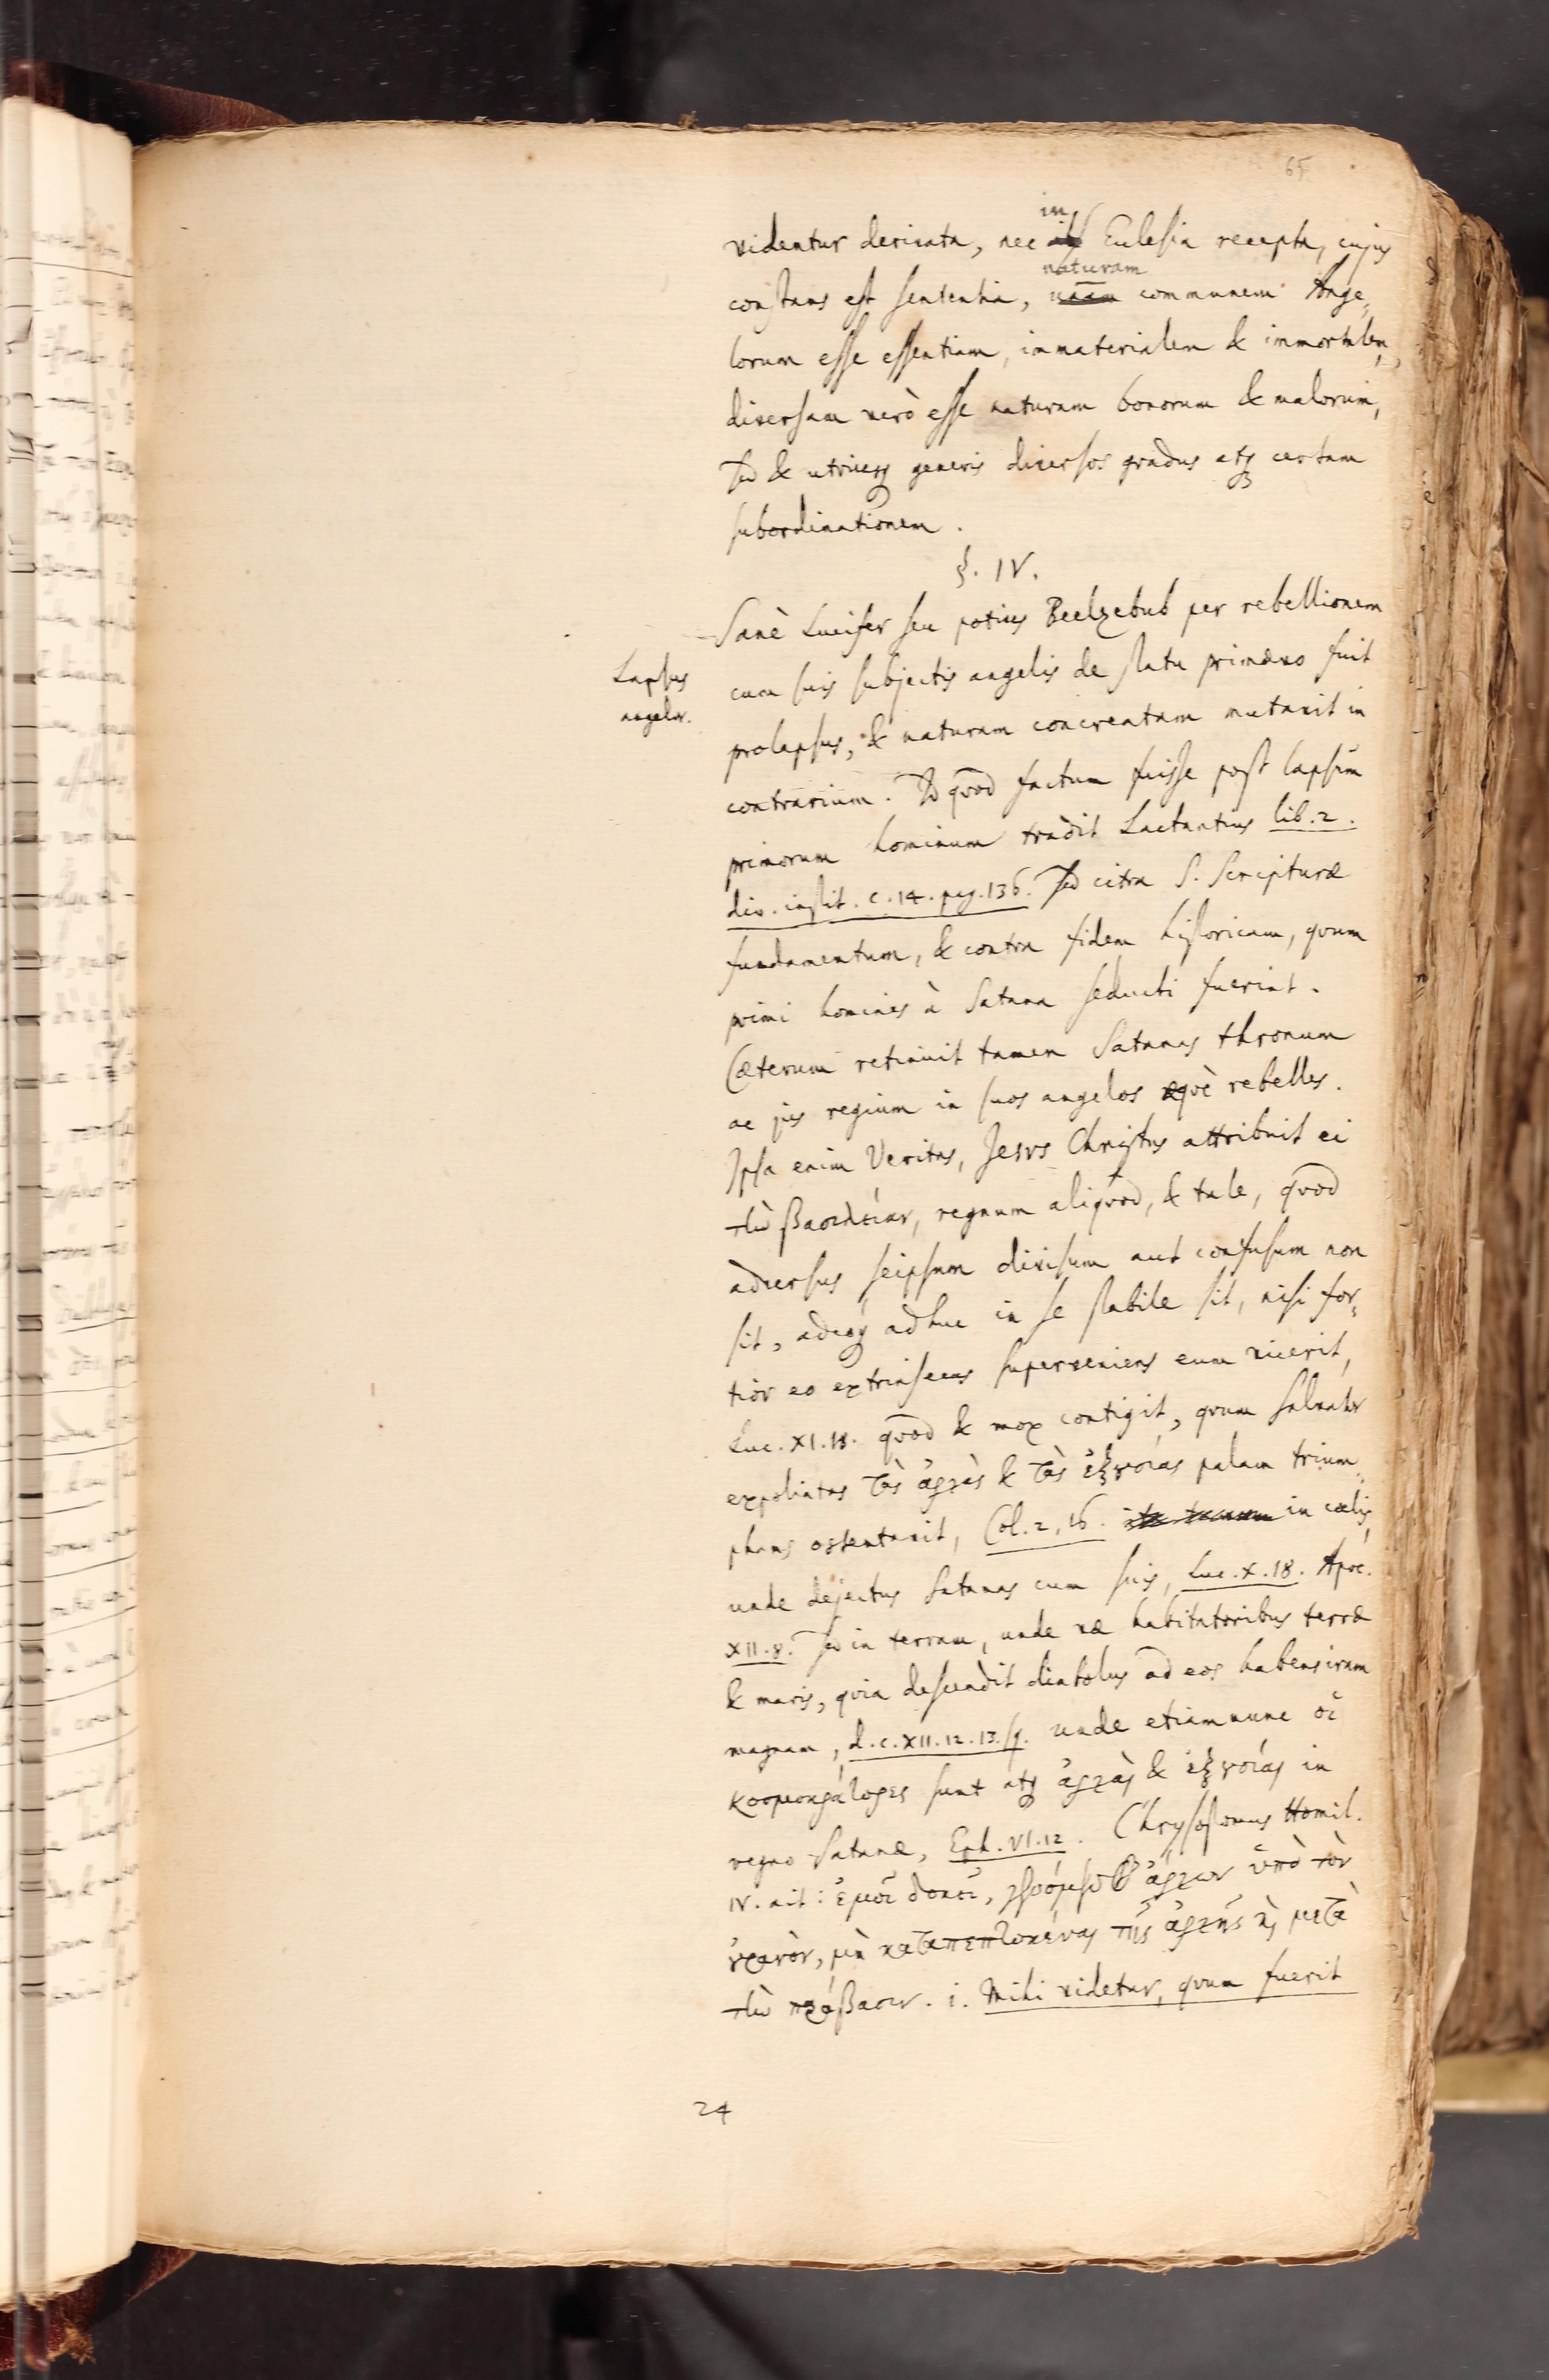 65.
in
videntur derivata, nec ab Ecclesia recepta, cujus
naturam
constans est sententia, unam communem Ange,
lorum esse essentiam, immaterialem & immortalem,
diversam verò esse naturam bonorum & malorum,
sed & utriusq; generis diversos gradus atq; certam
subordinationem.
§. IV.
Sanè Lucifer seu potius Beelzebub per rebellionem
Lapsus
angelor.
cum suis subjectis angelis de statu primævo fuit
prolapsus, & naturam concreatam mutavit in
contrarium. Id quod factum fuisse post lapsum
primorum hominum tradit Lactantius lib. 2.
div. instit. c. 14. pag. 136. Sed citra S. Scripturæ
fundamentum, & contra fidem historicam, quum
primi homines à Satana seducti fuerint.
Cæterum retinuit tamen Satanas thronum
ac jus regium in suos angelos æquè rebelles.
Ipsa enim Veritas, Jesus Christus attribuit ei
τὴν βασιλείαν, regnum aliquod, & tale, quod
adversus seipsum divisum aut confusum non
sit, adeoq; adhuc in se stabile sit, nisi for,
tior eo extrinsecus superveniens eum vicerit,
Luc. XI. 18. quod & mox contigit, quum Salvator
expoliatas τὰς ἀρχὰς & τὰς ἐξουσίας palam trium,
phans ostentavit, Col. 2, 16. in cælis,
unde dejectus Satanas cum suis, Luc. X. 18. Apoc.
XII. 8. Sed in terram, unde væ habitatoribus terræ
& maris, quia descendit diabolus ad eos habens iram
magnam, d. c. XII. 12. 13. sq. unde etiamnunc οἱ
κοσμοκράτορες sunt atq; ἀρχὰς & ἐξουσίας in
regno Satanæ, Eph. VI. 12. Chrysostomus Homil.
IV. ait: ἐμοὶ δοκεῖ, ἄρχων ὑπὸ τὸν
οὐρανὸν, μὴ καταπεπτωκέναι τῆς ἀρχῆς καὶ μετὰ
τὴν παράβασιν. i. Mihi videtur, quum fuerit
24